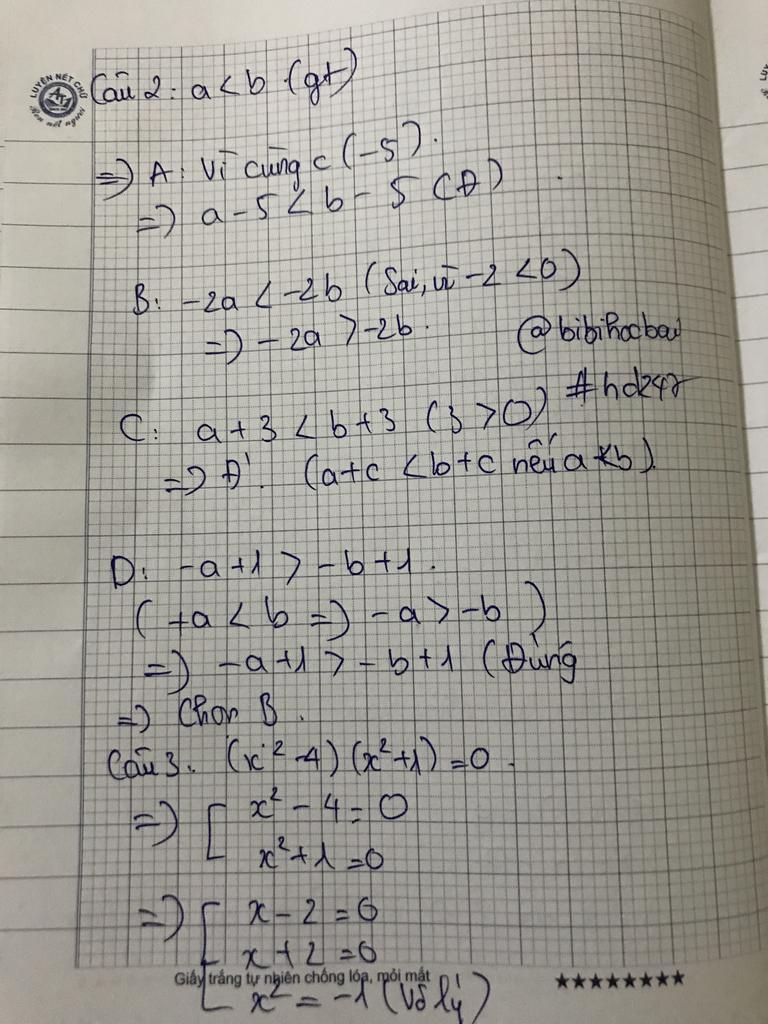 LUYỆN NÉT CHỮ
Rèn nết người
Câu 2: a < b (gt)
=> A: Vì cùng c (-5).
=> a - 5 < b - 5 (Đ)
B: -2a < -2b (Sai, vì -2 < 0)
=> -2a > -2b.
@bibihocbai
#hd247
C: a + 3 < b + 3 (3 > 0)
=> Đ'. (a+c < b+c nếu a < b).
D: -a+1 > -b+1.
(+a < b => -a > -b)
=> -a+1 > -b+1 (Đúng
=> Chọn B.
Câu 3. (x² - 4)(x²+1) = 0.
=> [ x² - 4 = 0
x² + 1 = 0
=> [ x - 2 = 0
x + 2 = 0
Giấy trắng tự nhiên chống lóa, mỏi mắt ★★★★★★★★
x² = -1 (Vô lý)